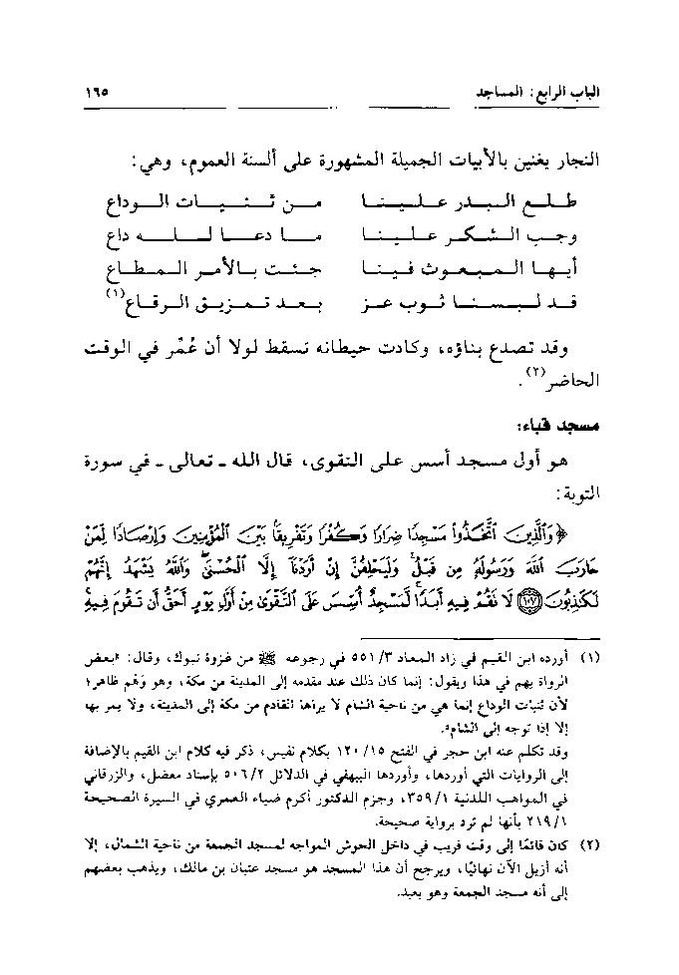 الباب الرابع: المساجد ١٦٥
النجار يغنين بالأبيات الجميلة المشهورة على ألسنة العموم، وهي:
طلع البدر علينا من ثنيات الوداع
وجب الشكر علينا ما دعا لله داع
أيها المبعوث فينا جئت بالأمر المطاع
قد لبسنا ثوب عز بعد تمزيق الرقاع(١)
وقد تصدع بناؤه، وكادت حيطانه تسقط لولا أن عُمِّر في الوقت
الحاضر(٢).
مسجد قباء:
هو أول مسجد أسس على التقوى، قال الله ـ تعالى ـ في سورة
التوبة:
﴿وَالَّذِينَ اتَّخَذُوا مَسْجِدًا ضِرَارًا وَكُفْرًا وَتَفْرِيقًا بَيْنَ الْمُؤْمِنِينَ وَإِرْصَادًا لِمَنْ
حَارَبَ اللَّهَ وَرَسُولَهُ مِن قَبْلُ وَلَيَحْلِفُنَّ إِنْ أَرَدْنَا إِلَّا الْحُسْنَى وَاللَّهُ يَشْهَدُ إِنَّهُمْ
لَكَاذِبُونَ ١٠٧ لَا تَقُمْ فِيهِ أَبَدًا لَمَسْجِدٌ أُسِّسَ عَلَى التَّقْوَى مِنْ أَوَّلِ يَوْمٍ أَحَقُّ أَن تَقُومَ فِيهِ
(١) أورده ابن القيم في زاد المعاد ٥٥١/٣ في رجوعه ﷺ من غزوة تبوك، وقال: «بعض
الرواة يهم في هذا ويقول: إنما كان ذلك عند مقدمه إلى المدينة من مكة، وهو وَهْم ظاهر؛
لأن ثنيات الوداع إنما هي من ناحية الشام لا يراها القادم من مكة إلى المدينة، ولا يمر بها
إلا إذا توجه إلى الشام».
وقد تكلم عنه ابن حجر في الفتح ١٢٠/١٥ بكلام نفيس، ذكر فيه كلام ابن القيم بالإضافة
إلى الروايات التي أوردها، وأوردها البيهقي في الدلائل ٥٠٦/٢ بإسناد معضل، والزرقاني
في المواهب اللدنية ٣٥٩/١، وجزم الدكتور أكرم ضياء العمري في السيرة الصحيحة
٢١٩/١ بأنها لم ترد برواية صحيحة.
(٢) كان قائمًا إلى وقت قريب في داخل الحوش المواجه لمسجد الجمعة من ناحية الشمال، إلا
أنه أزيل الآن نهائيًا، ويرجح أن هذا المسجد هو مسجد عتبان بن مالك، ويذهب بعضهم
إلى أنه مسجد الجمعة وهو بعيد.